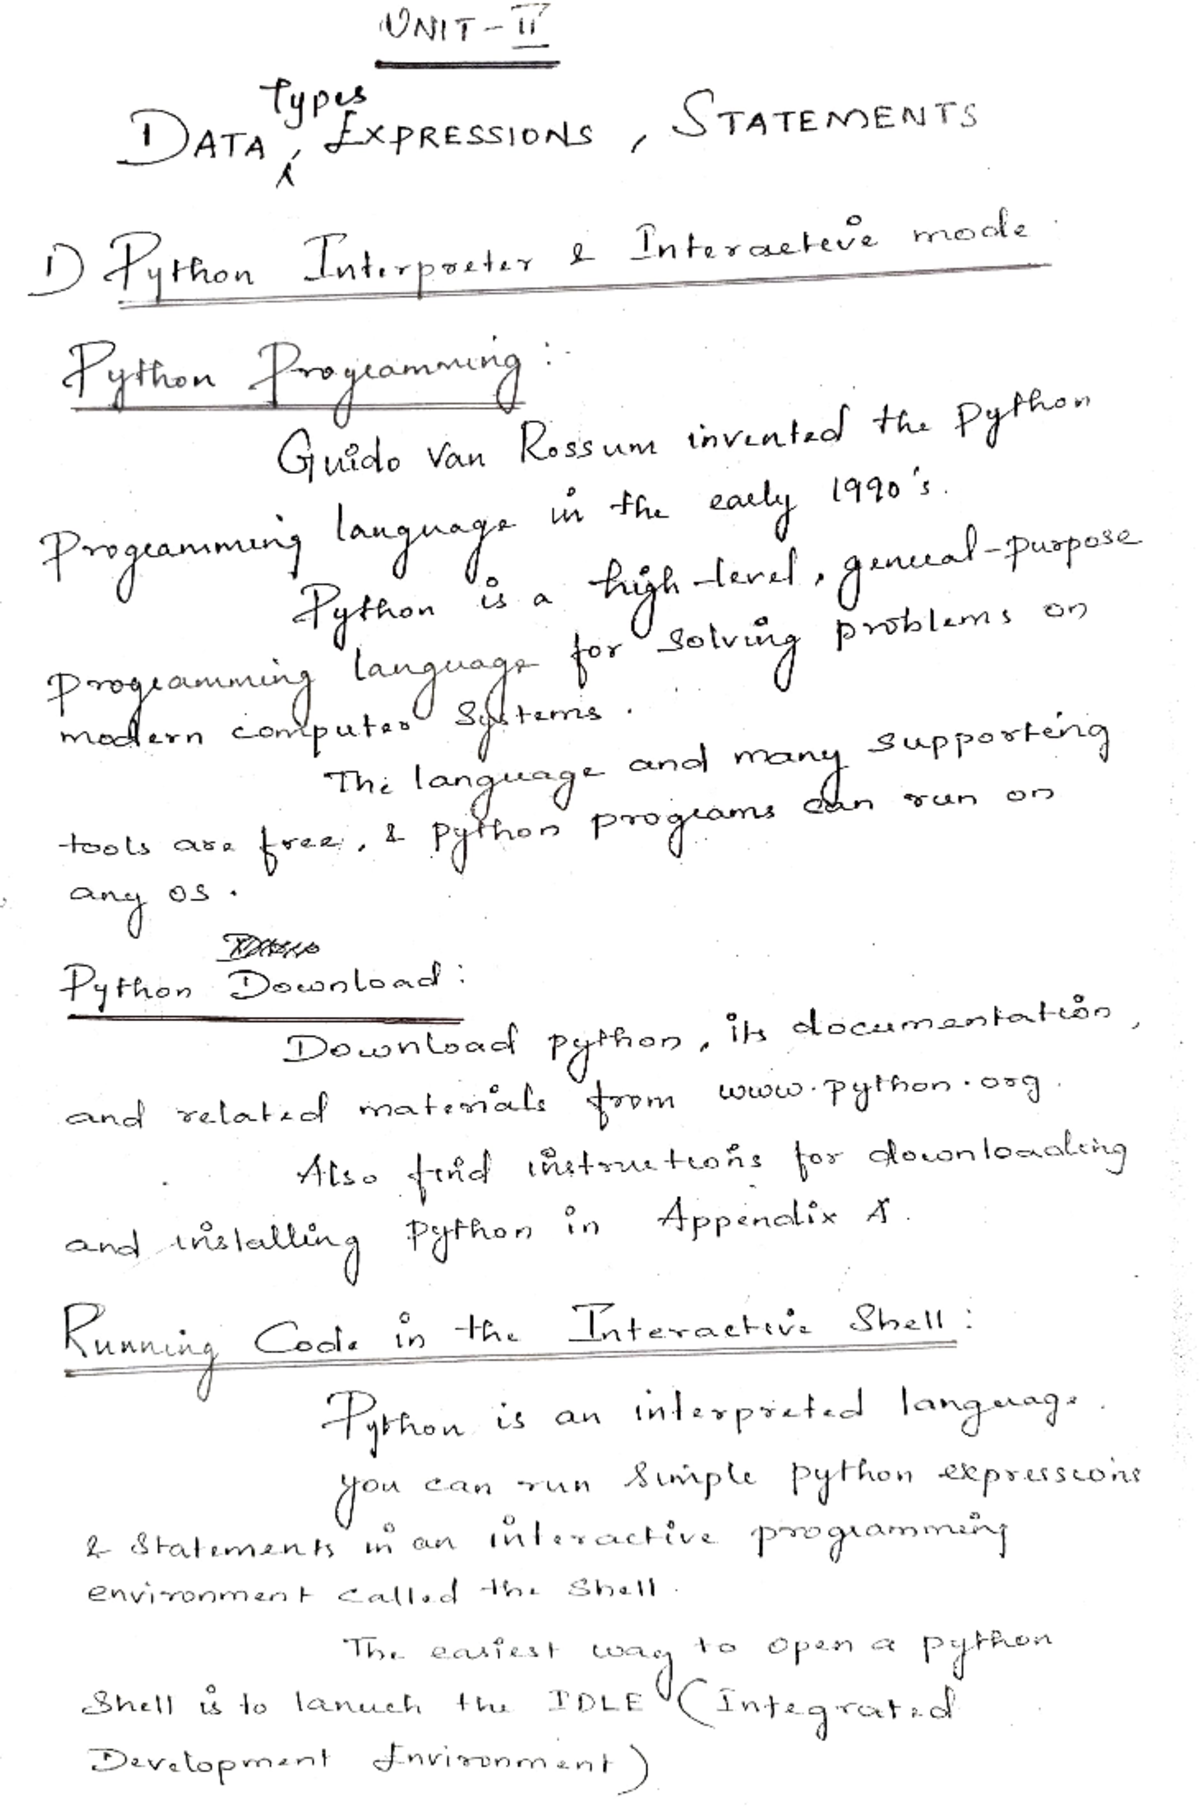 UNIT-II
DATA types, EXPRESSIONS, STATEMENTS
1) Python Interpreter & Interactive mode
Python Programming:-
Guido Van Rossum invented the python
Programming language in the early 1990's.
Python is a high-level, general-purpose
Programming language for solving problems on
modern computer Systems.
The language and many supporting
tools are free, & python programs can run on
any OS.
Python Download:
Download python, its documentation,
and related materials from www.python.org.
Also find instructions for downloading
and installing python in Appendix A.
Running Code in the Interactive Shell:
Python is an interpreted language.
you can run Simple python expressions
& Statements in an interactive programming
environment called the Shell.
The easiest way to open a python
Shell is to lanuch the IDLE (Integrated
Development Environment)